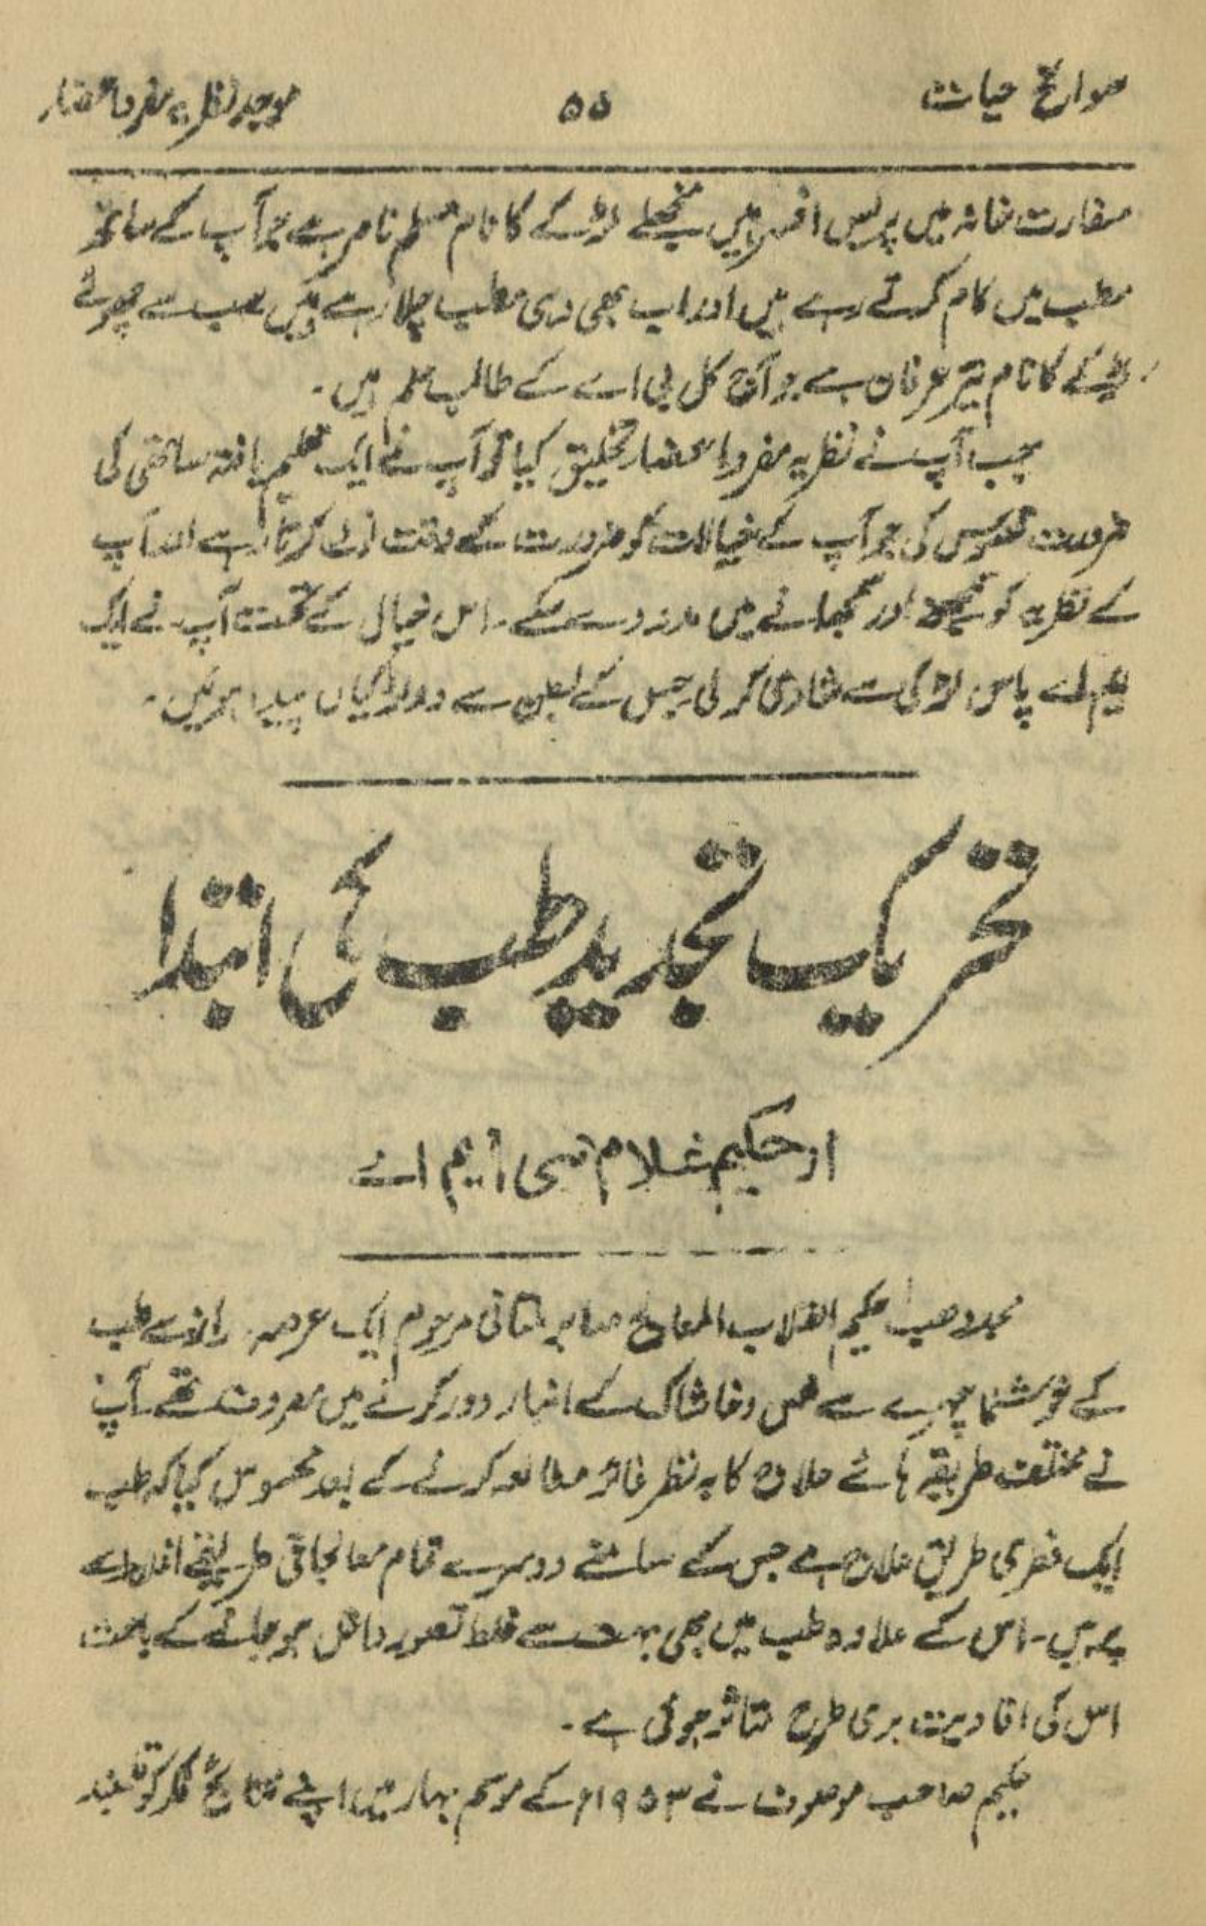 سوانح حیات ۵۵ موجد نظریہ مفرد اعضاء
سفارت خانہ میں پریس افسر ہیں منجھلے لڑکے کا نام مسلم ناصر ہے جو آپ کے ساتھ
مطب میں کام کرتے رہے ہیں اور اب بھی وہی مطب چلا رہے ہیں سب سے چھوٹے
لڑکے کا نام عرفان ہے جو آج کل بی اے کے طالب علم ہیں۔
جب آپ نے نظریہ مفرد اعضاء تخلیق کیا تو آپ نے ایک تعلیم یافتہ ساتھی کی
ضرورت محسوس کی جو آپ کے خیالات کو ضرورت کے وقت نوٹ کرتا رہے اور آپ
کے نظریہ کو سمجھنے اور سمجھانے میں مدد دے سکے۔ اس خیال کے تحت آپ نے ایک
ایم اے پاس لڑکی سے شادی کر لی جس کے بطن سے دو لڑکیاں پیدا ہوئیں۔
تحریک تجدید طب کی ابتدا
از حکیم غلام نبی ایم اے
مجدد طب حکیم انقلاب المعالج صابر ملتانی مرحوم ایک عرصہ دراز سے طب
کے خوشنما چہرے سے خس و خاشاک کے انبار دور کرنے میں مصروف تھے۔ آپ
نے مختلف طریقہ ہائے علاج کا بہ نظر غائر مطالعہ کرنے کے بعد محسوس کیا کہ طب
ایک فطری طریق علاج ہے جس کے سامنے دوسرے تمام معالجاتی طریقے
پر ہیں۔ اس کے علاوہ طب میں بھی بہت سے غلط تصور داخل ہو جانے کے باعث
اس کی افادیت بری طرح متاثر ہوئی ہے۔
حکیم صاحب موصوف نے ۱۹۵۳ء کے موسم بہار میں اپنے نتائج فکر کو قلمبند